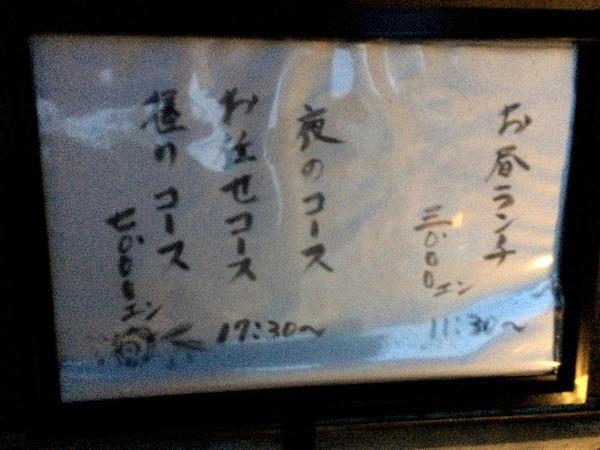 お昼ランチ
三,000エン
11:30〜
夜のコース
お任せコース
17:30〜
握りコース
七,000エン